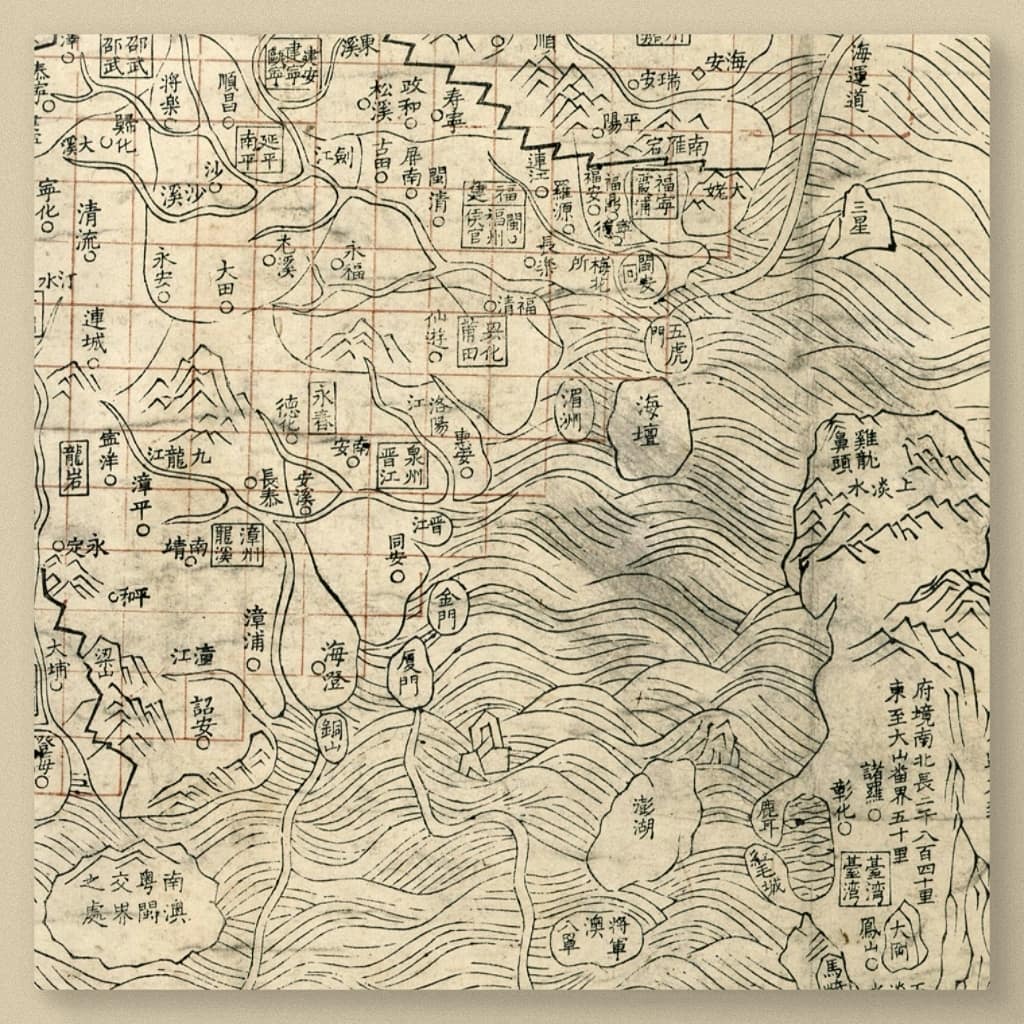 邵武
邵武
將樂
順昌
建寧
建安
東溪
松溪
政和
壽寧
瑞安
海安
平陽
南雁宕
海運道
歸化
大溪
南平
延平
劍江
古田
屏南
閩清
連江
羅源
福安
福鼎
霞浦
福寧
大姥
三星
沙
沙溪
寧化
清流
侯官
福州
閩
永安
大田
尤溪
永福
長樂
梅花所
閩安
汀水
連城
福清
仙遊
莆田
興化
五虎門
湄洲
海壇
德化
永春
洛陽江
惠安
雞籠
鼻頭
上淡水
龍岩
寧洋
九龍江
漳平
長泰
安溪
南安
晉江
泉州
永定
南靖
龍溪
漳州
晉江
同安
平和
金門
大埔
梁山
漳浦
潼江
海澄
廈門
詔安
銅山
府境南北長二千八百四十里
東至大山番界五十里
諸羅
彰化
澎湖
鹿耳
紅毛城
臺灣
臺灣
南澳
粵閩
交界
之處
將軍澳
八罩
鳳山
大岡